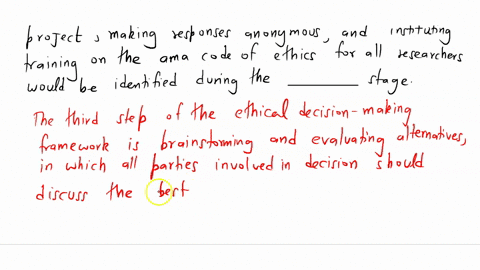 project, making responses anonymous, and instituting
training on the ama code of ethics for all researchers
would be identified during the ________ stage.
The third step of the ethical decision-making
framework is brainstorming and evaluating alternatives,
in which all parties involved in decision should
discuss the best